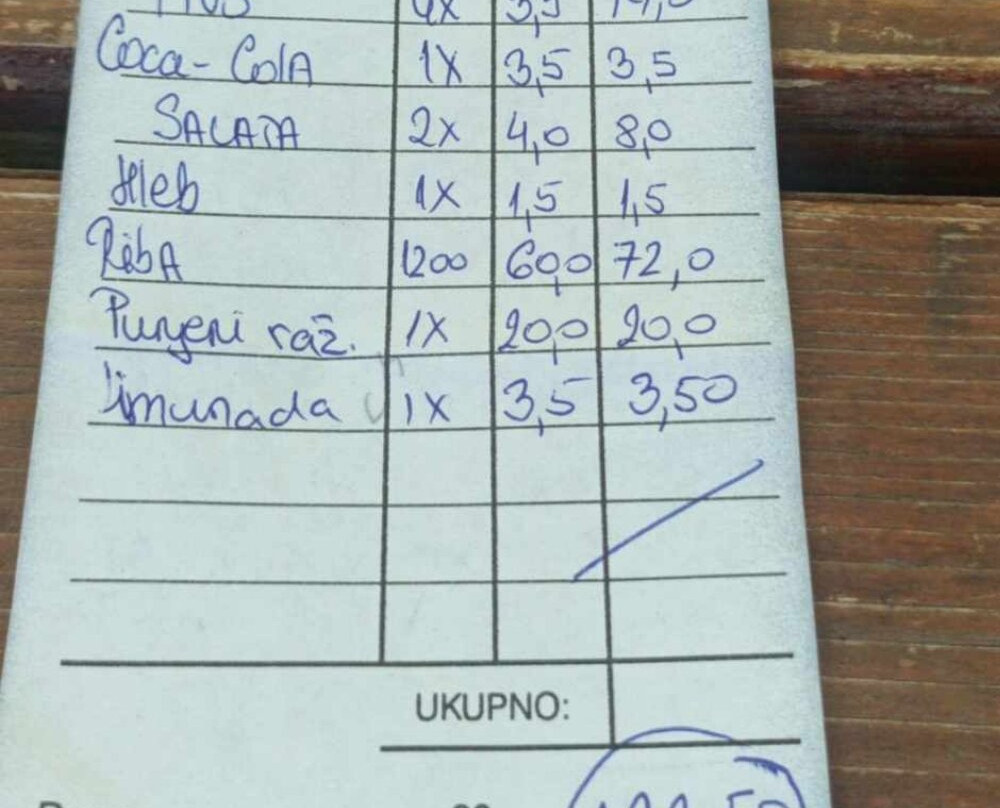 4x 3,5 14,0
Coca-Cola 1X 3,5 3,5
SALATA 2x 4,0 8,0
Hleb 1X 1,5 1,5
Riba 1200 60,0 72,0
Punjeni raž. 1X 20,0 20,0
limunada 1X 3,5 3,50
UKUPNO: